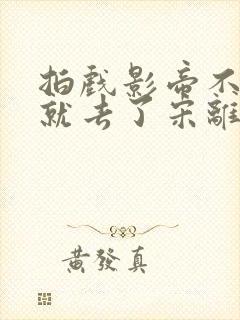 拍戲影帝不
就去了宋離
黃發真